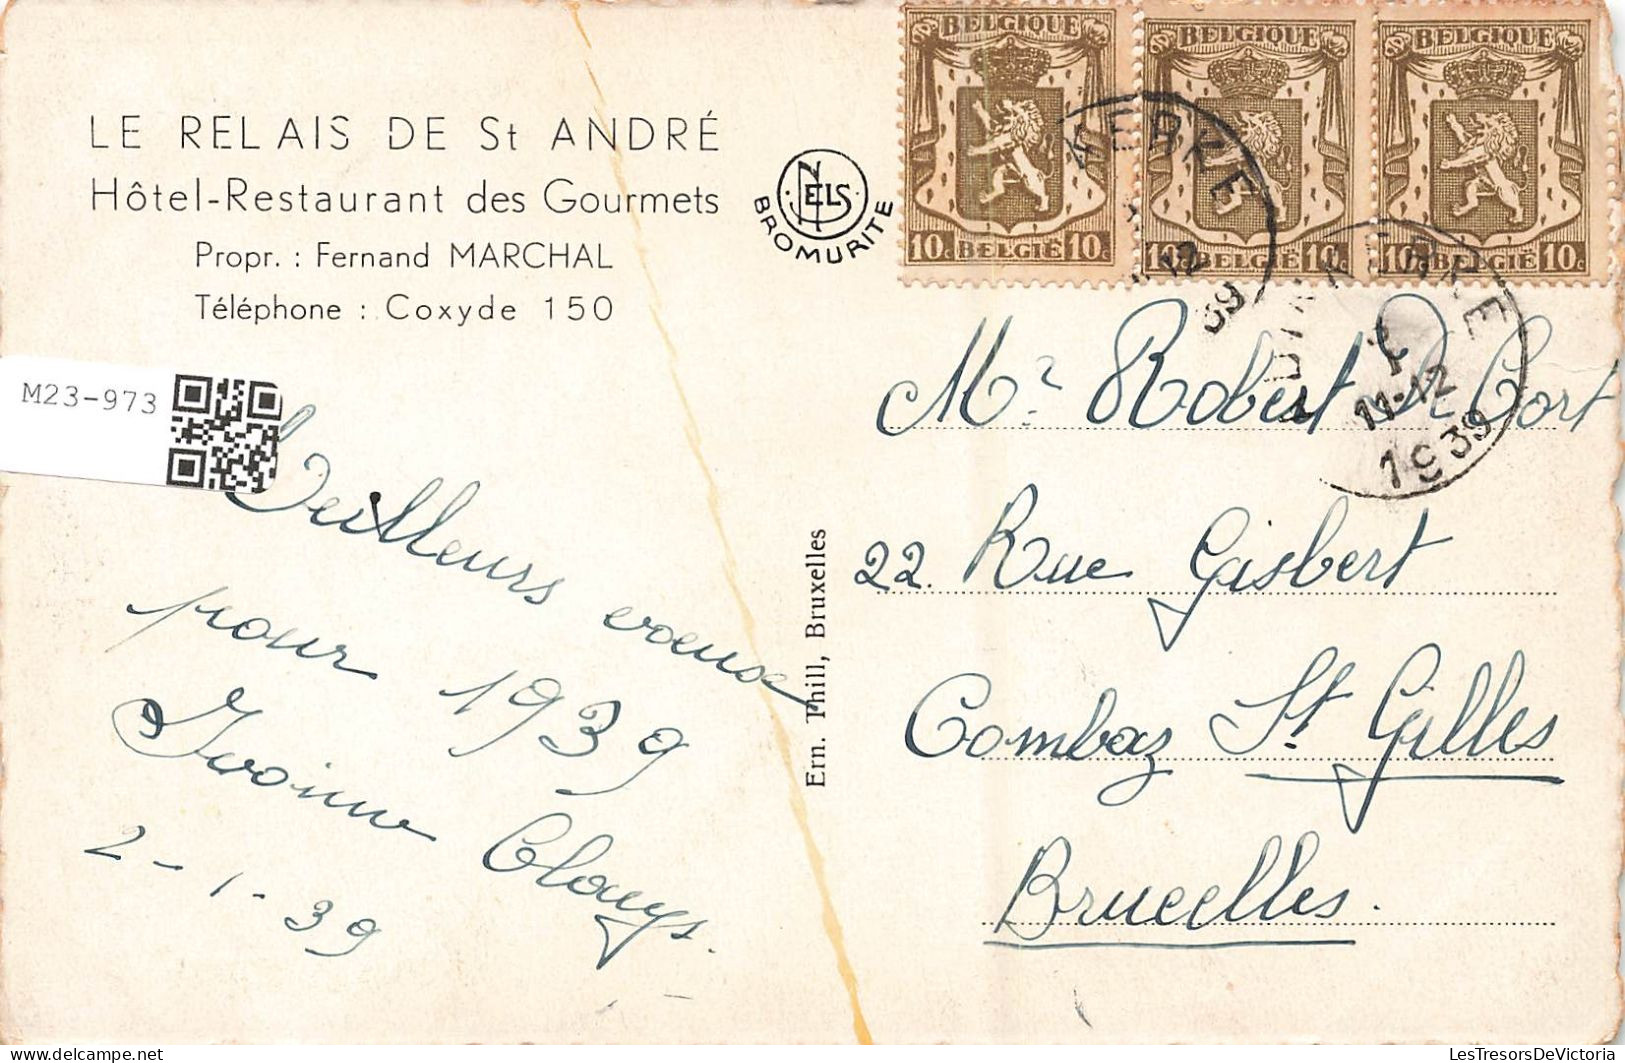 BELGIQUE BELGIQUE BELGIQUE
10c BELGIË 10c 10c BELGIË 10c 10c BELGIË 10c
LE RELAIS DE St ANDRÉ
Hôtel-Restaurant des Gourmets
Propr. : Fernand MARCHAL
Téléphone : Coxyde 150
NELS
BROMURITE
M23-973
11-12
1939
Meilleurs voeux
pour 1939
2-1-39
Ern. Thill, Bruxelles
Mr Robert De Cort
22. Rue Gisbert
Combaz St. Gilles
Bruxelles.
LesTresorsDeVictoria